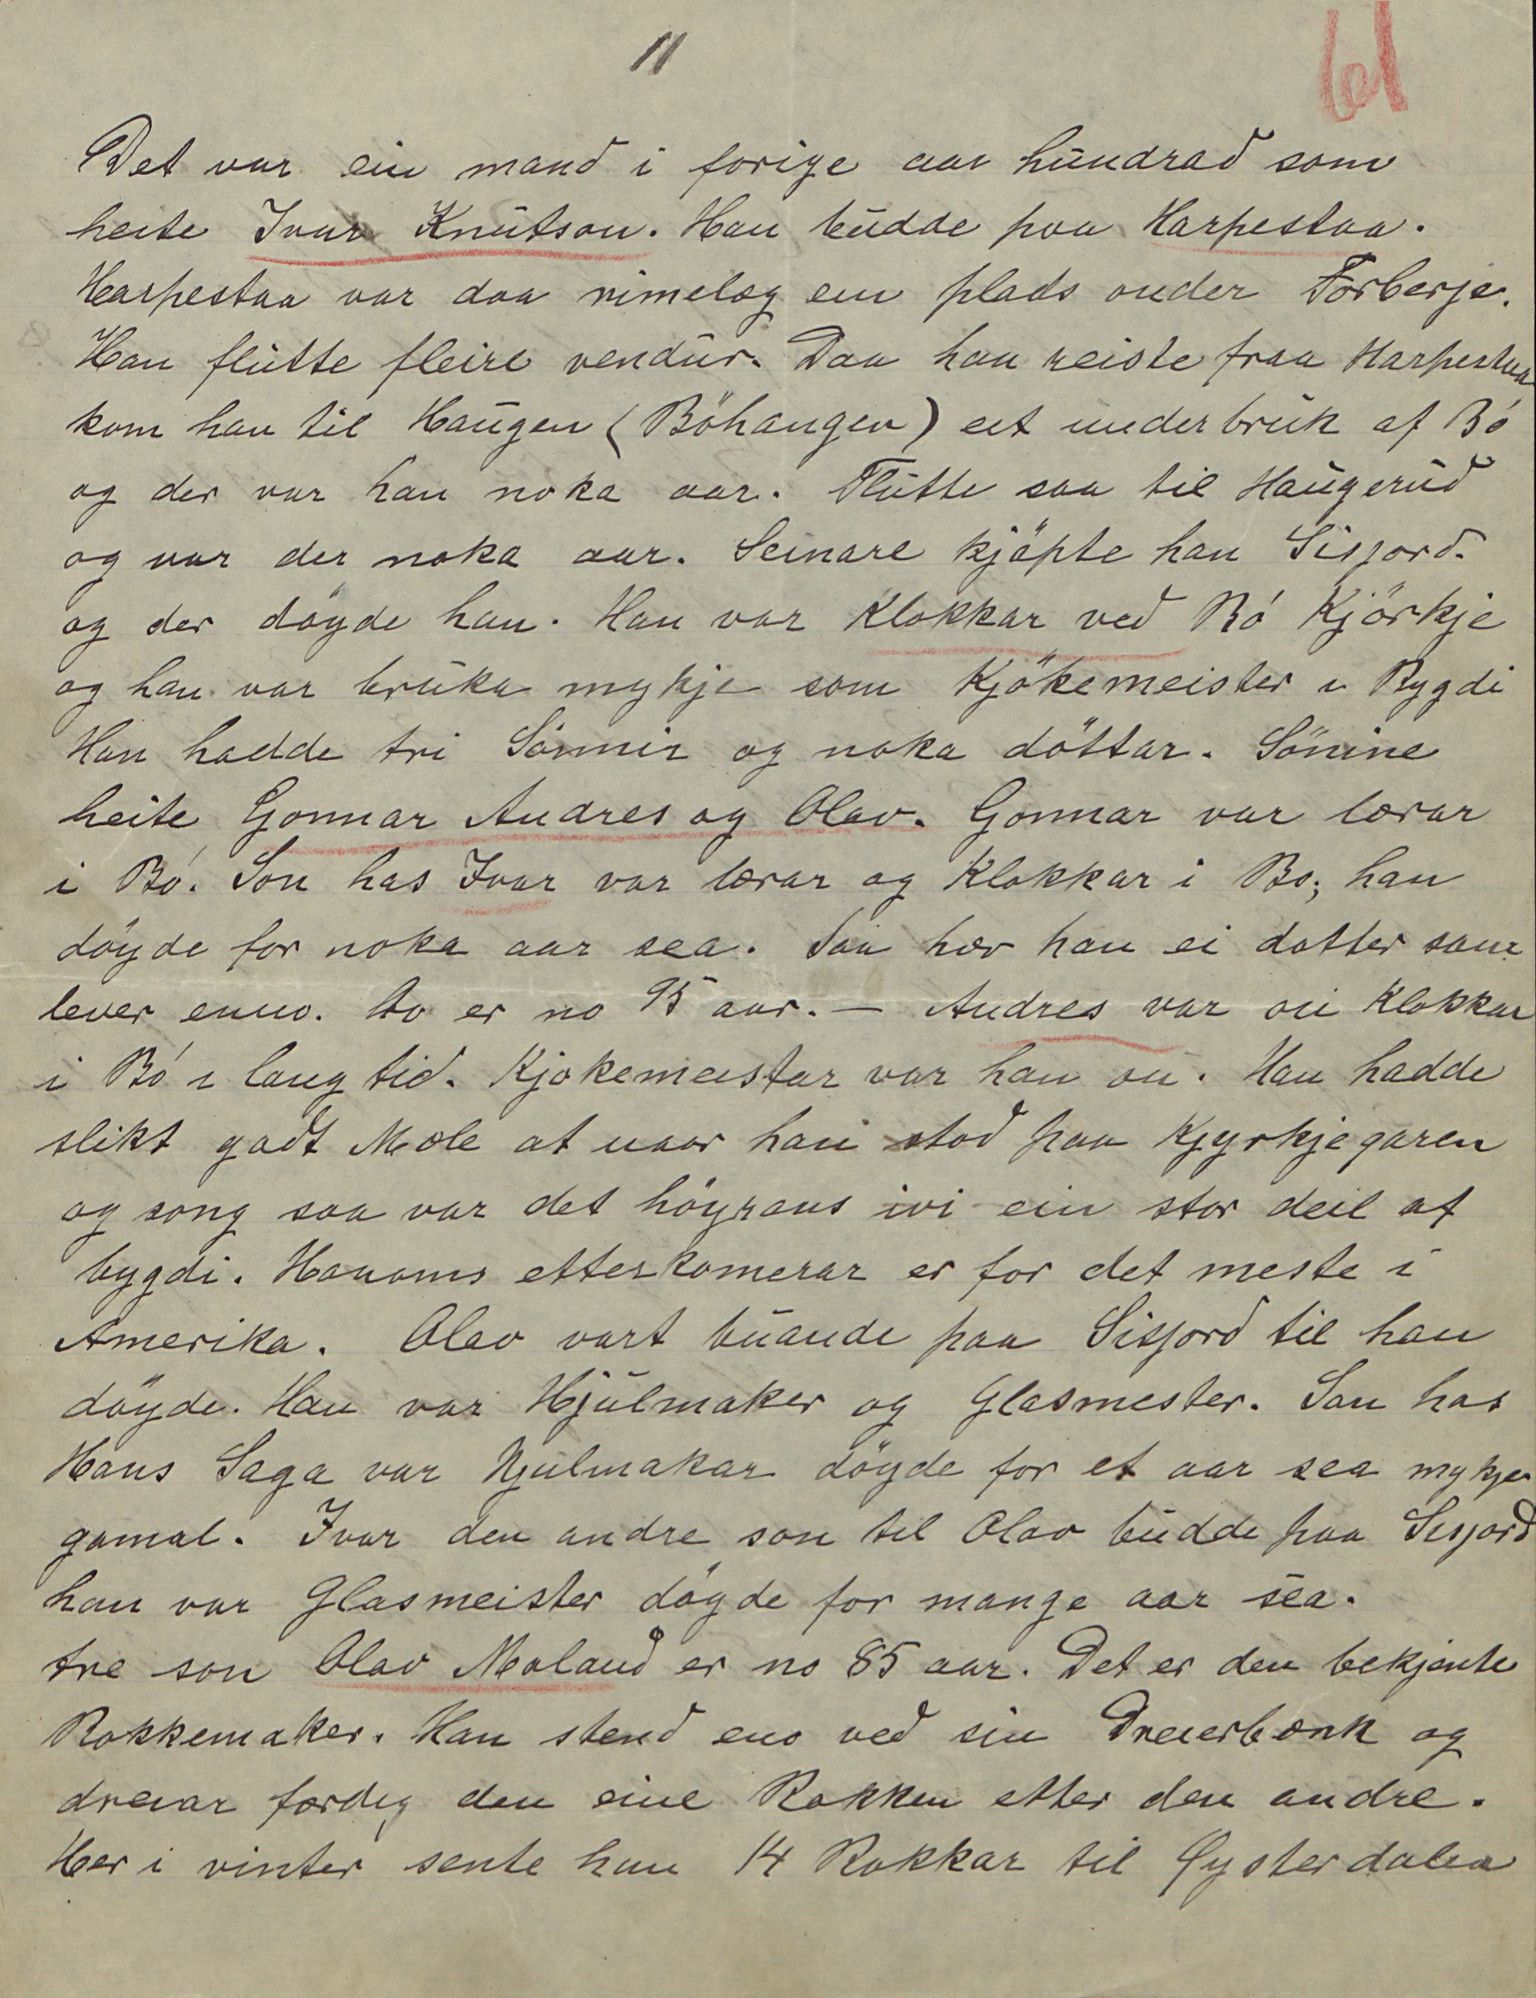 11
61
Det var ein mand i forige aar hundrad som
heite Ivar Knutson. Han budde paa Harpestaa.
Harpestaa var daa rimeleg em plads onder Forberje.
Han flutte fleire vendur. Daa han reiste fraa Harpestaa
kom han til Haugen (Böhaugen) eit underbruk af Bó
og der var han noka aar. Flutte saa til Haugerud
og var der noka aar. Seinare kjöpte han Sisjord.
og der döyde han. Han var Klokkar ved Bó Kjörkje
og han var bruka mykje som Kjökemeister i Bygdi
Han hadde tri Sönnir og noka döttar. Sönine
heite Gonnar Andres og Olav. Gonnar var lærar
i Bó. Son has Ivar var lærar og Klokkar i Bo; han
döyde for noka aar sea. Saa hæv han ei dotter som
lever enno. Ho er no 95 aar. — Andres var oii Klokkar
i Bó i lang tid. Kjokemeistar var han oii. Han hadde
slikt godt Mæle at naar han stod paa Kjyrkjegaren
og song saa var det höyrans ivi ein stor deil af
bygdi. Honoms etterkomerar er for det meste i
Amerika. Olav vart buande paa Sisjord til han
döyde. Han var Hjulmaker og Glasmester. Son has
Hans Saga var Hjulmakar döyde for et aar sea mykje
gamal. Ivar den andre son til Olav budde paa Sisjord
han var Glasmeister döyde for mange aar sea.
tre son Olav Moland er no 85 aar. Det er den bekjente
Rokkemaker. Han stend eno ved sin Dreierbænk og
dreiar færdig den eine Rokken etter den andre.
Her i vinter sente han 14 Rokkar til Øysterdalen